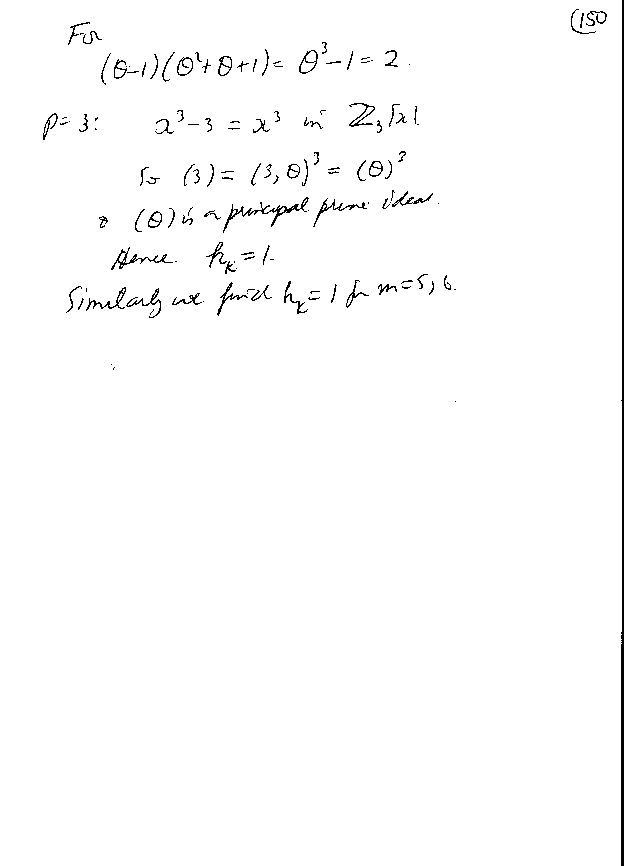 (150
For
(θ-1)(θ²+θ+1) = θ³-1 = 2.
p=3: x³-3 = x³ in ℤ₃[x].
So (3) = (3,θ)³ = (θ)³
& (θ) is a principal prime ideal.
Hence h_K = 1.
Similarly we find h_K = 1 for m=5, 6.